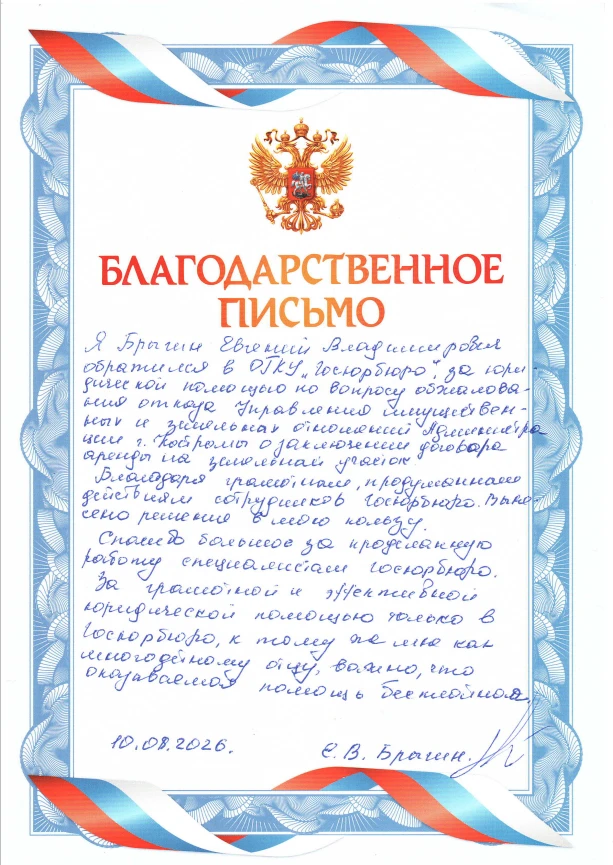 БЛАГОДАРСТВЕННОЕ
ПИСЬМО
Я Брыгин Евгений Владимирович
обратился в ОГКУ „Госюрбюро", за юри-
дической помощью по вопросу обжалова-
ния отказа Управления имуществен-
ных и земельных отношений Администра
ции г. Костромы о заключении договора
аренды на земельный участок.
Благодаря грамотным, продуманным
действиям сотрудников Госюрбюро. Выне-
сено решение в мою пользу.
Спасибо большое за проделанную
работу специалистам Госюрбюро.
За грамотной и эффективной
юридической помощью только в
Госюрбюро, к тому же мне как
многодетному отцу, важно, что
оказываемая помощь бесплатная.
10.08.2026.
Е.В. Брыгин.